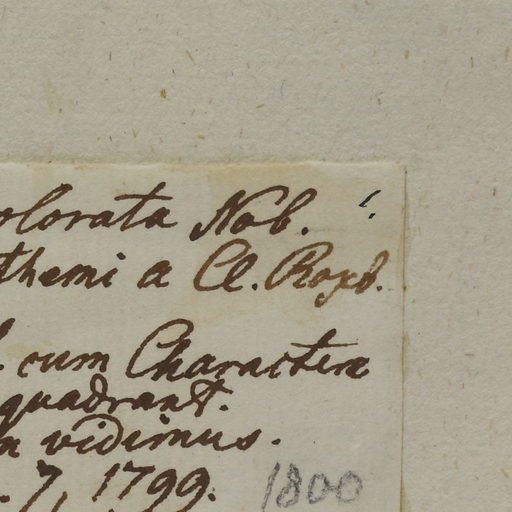 olorata Nob.
themi a Cl. Roxb.
. cum Charactere
quadrant.
vidimus.
. 7, 1799.
1800